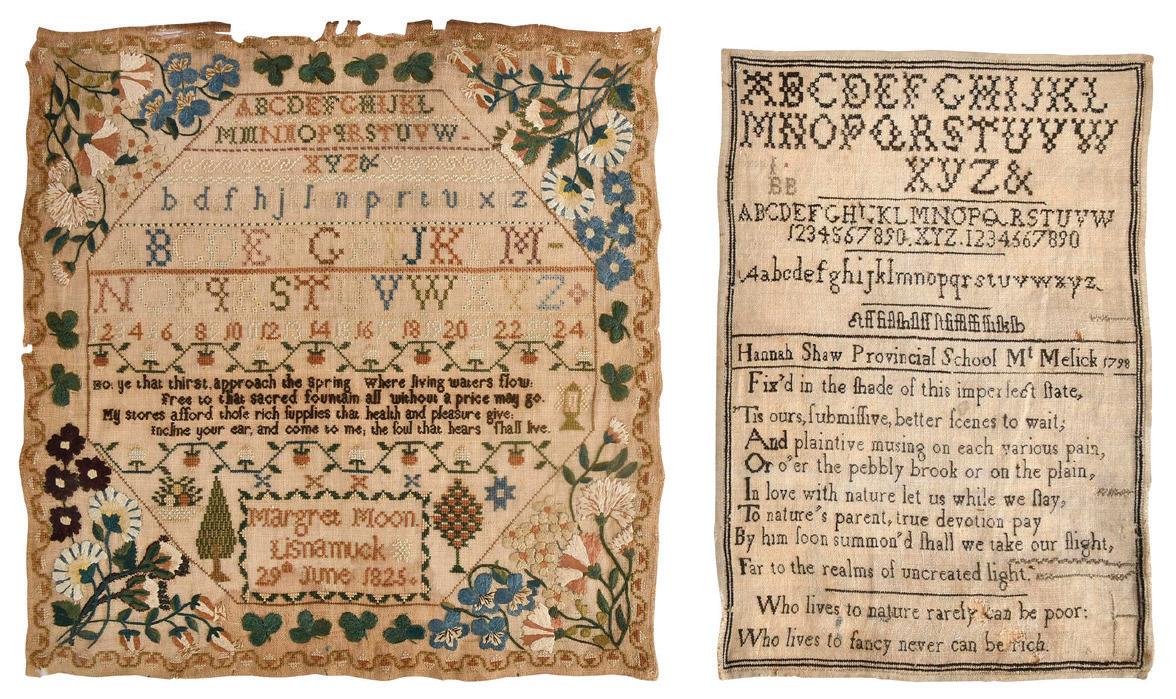 ABCDEFGHIJKL
MNOPQRSTUVW-
XYZ&
b d f h j l n p r t u x z
B D E G J K M-
N O P Q R S T V W X Y Z
2 4 6 8 10 12 14 16 18 20 22 24
Ho: ye that thirst, approach the spring where living waters flow:
Free to that sacred fountain all without a price may go.
My stores afford thoſe rich ſupplies that health and pleaſure give:
Incline your ear, and come to me; the ſoul that hears ſhall live.
Margret Moon
Lisnamuck
29th June 1825
ABCDEFGHIJKL
MNOPQRSTUVW
XYZ&
I.
BB
ABCDEFGHIJKLMNOPQRSTUVW
1234567890.XYZ.1234567890
abcdefghijklmnopqrstuvwxyz
Hannah Shaw Provincial School Mt Melick 1798
Fix'd in the ſhade of this imperfect ſtate,
'Tis ours, ſubmiſſive, better ſcenes to wait;
And plaintive musing on each various pain,
Or o'er the pebbly brook or on the plain,
In love with nature let us while we ſtay,
To nature's parent, true devotion pay
By him ſoon summon'd ſhall we take our flight,
Far to the realms of uncreated light.
Who lives to nature rarely can be poor:
Who lives to fancy never can be rich.